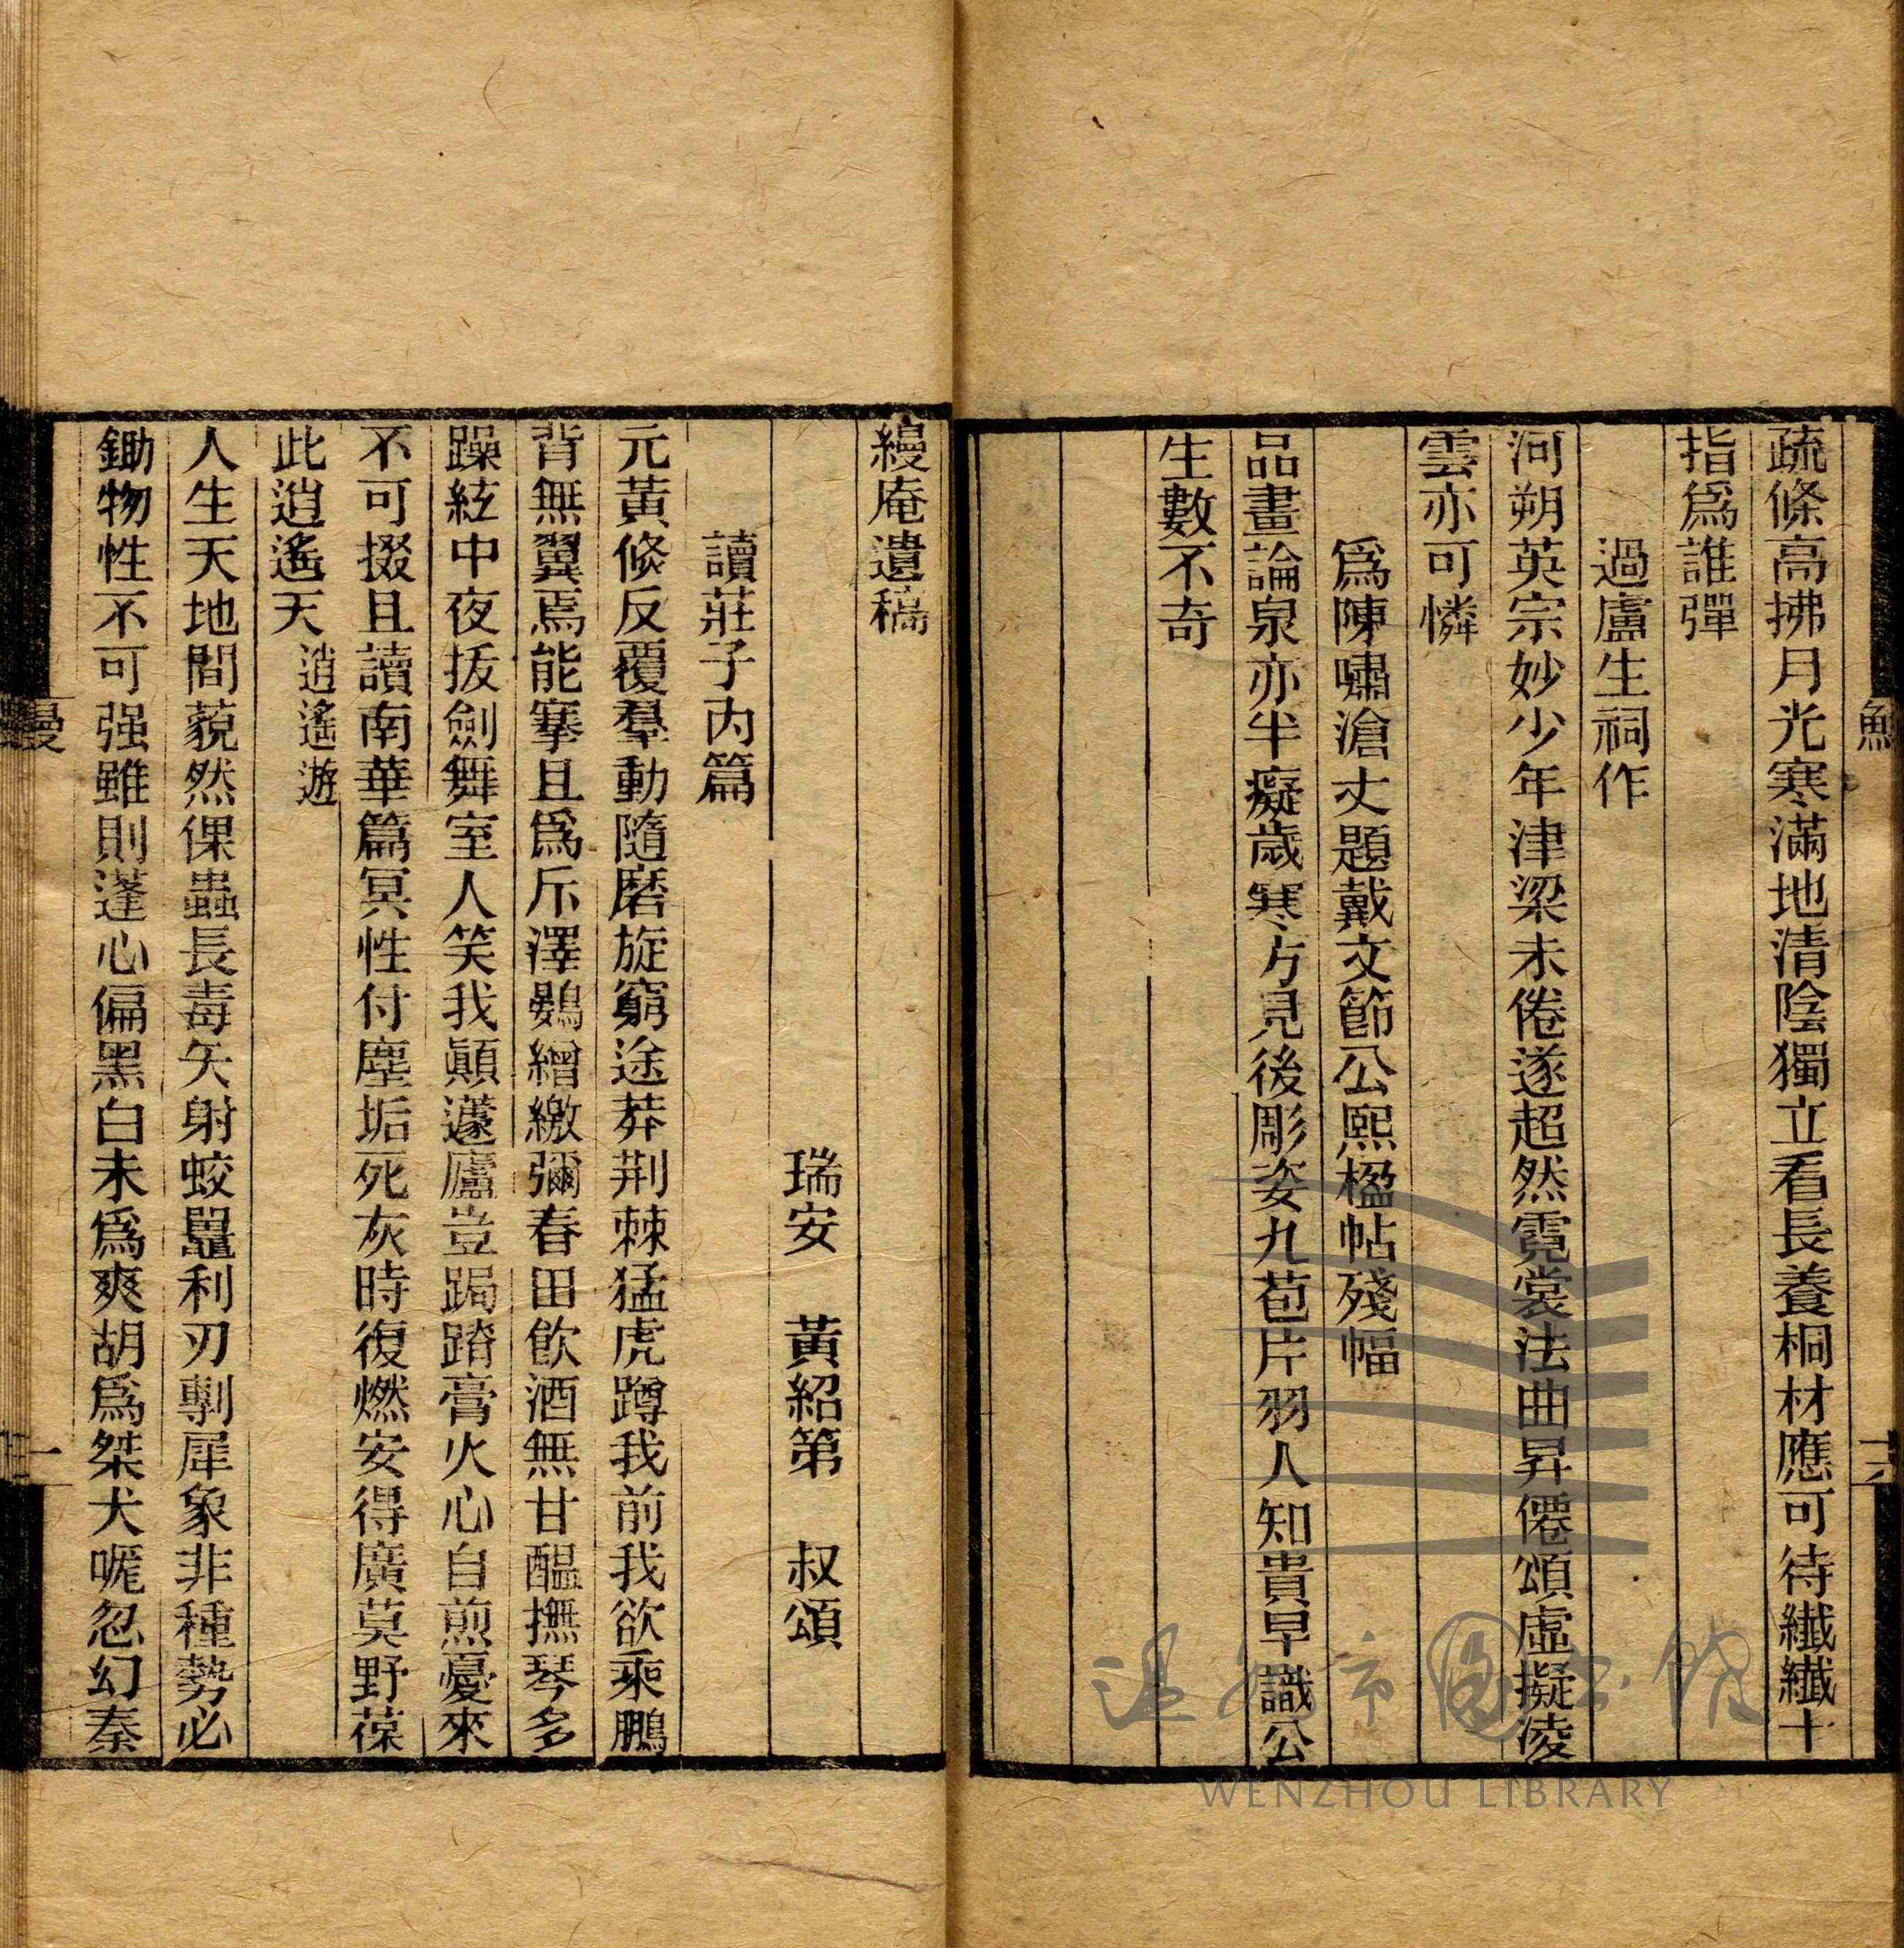 疏條高拂月光寒滿地清陰獨立看長養桐材應可待纖纖十
指爲誰彈
過盧生祠作
河朔英宗妙少年津梁未倦遂超然霓裳法曲昇僊頌虛擬凌
雲亦可憐
爲陳嘯滄丈題戴文節公熙楹帖殘幅
品畫論泉亦半癡歲寒方見後彫姿九苞片羽人知貴早識公
生數不奇
十六
縵庵遺稿
瑞安 黃紹第 叔頌
讀莊子內篇
元黃倐反覆羣動隨磨旋窮途莽荆棘猛虎蹲我前我欲乘鵬
背無翼焉能搴且爲斥澤鷃繒繳彌春田飲酒無甘醖撫琴多
躁絃中夜拔劍舞室人笑我顚蘧廬豈跼蹐膏火心自煎憂來
不可掇且讀南華篇冥性付塵垢死灰時復燃安得廣莫野葆
此逍遙天 逍遙遊
人生天地間藐然倮蟲長毒矢射蛟鼉利刃剸犀象非種勢必
鋤物性不可强雖則蓬心偏黑白未爲爽胡爲桀犬嗁忽幻秦
一
温州市图书馆
WENZHOU LIBRARY